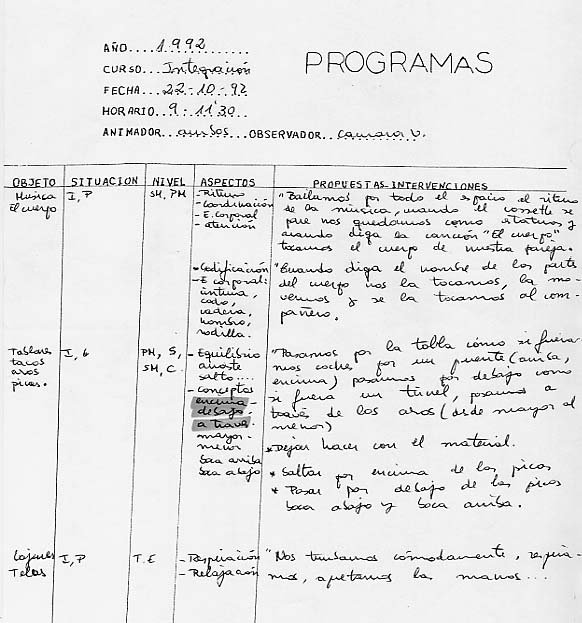 AÑO....1.992..............
PROGRAMAS
CURSO...Integración
FECHA....22-10-92
HORARIO..9-11'30
ANIMADOR..ambos...OBSERVADOR..camara v.
OBJETO SITUACION NIVEL ASPECTOS PROPUESTAS-INTERVENCIONES
Musica I, P SM, PM -Ritmo "Bailamos por todo el espacio el ritmo
El cuerpo -Coordinación de la música, cuando el cassette se
-E.Corporal pare nos quedamos como estatuas y
-atención cuando diga la canción "El cuerpo"
tocamos el cuerpo de nuestra pareja.
*Codificación "Cuando diga el nombre de las partes
-E corporal: del cuerpo nos la tocamos, la mo-
cintura, vemos y se la tocamos al com-
codo, pañero.
cadera,
hombro,
rodilla.
Tablones I, G PM, S, -Equilibrio "Pasamos por la tabla cómo si fuera-
tacos SM, C. arrastre mos coches por un puente (arriba,
aros salto... encima) pasamos por debajo como
picas. -conceptos si fuera un túnel, pasamos a
encima- través de los aros (desde mayor al
debajo- menor)
a traves. *Dejar hacer con el material.
mayor-
menor * Saltar por encima de las picas
boca arriba * Pasar por debajo de las picas
boca abajo boca abajo y boca arriba.
Cojines I, P T.E -Respiración "Nos tumbamos cómodamente, respira-
Telas -Relajación mos, apretamos las manos...